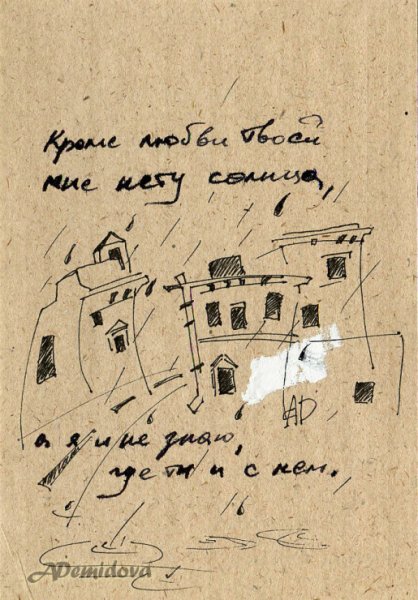 Кроме любви твоей
мне нету солнца,
AD
а я и не знаю,
где ты и с кем.
ADemidova